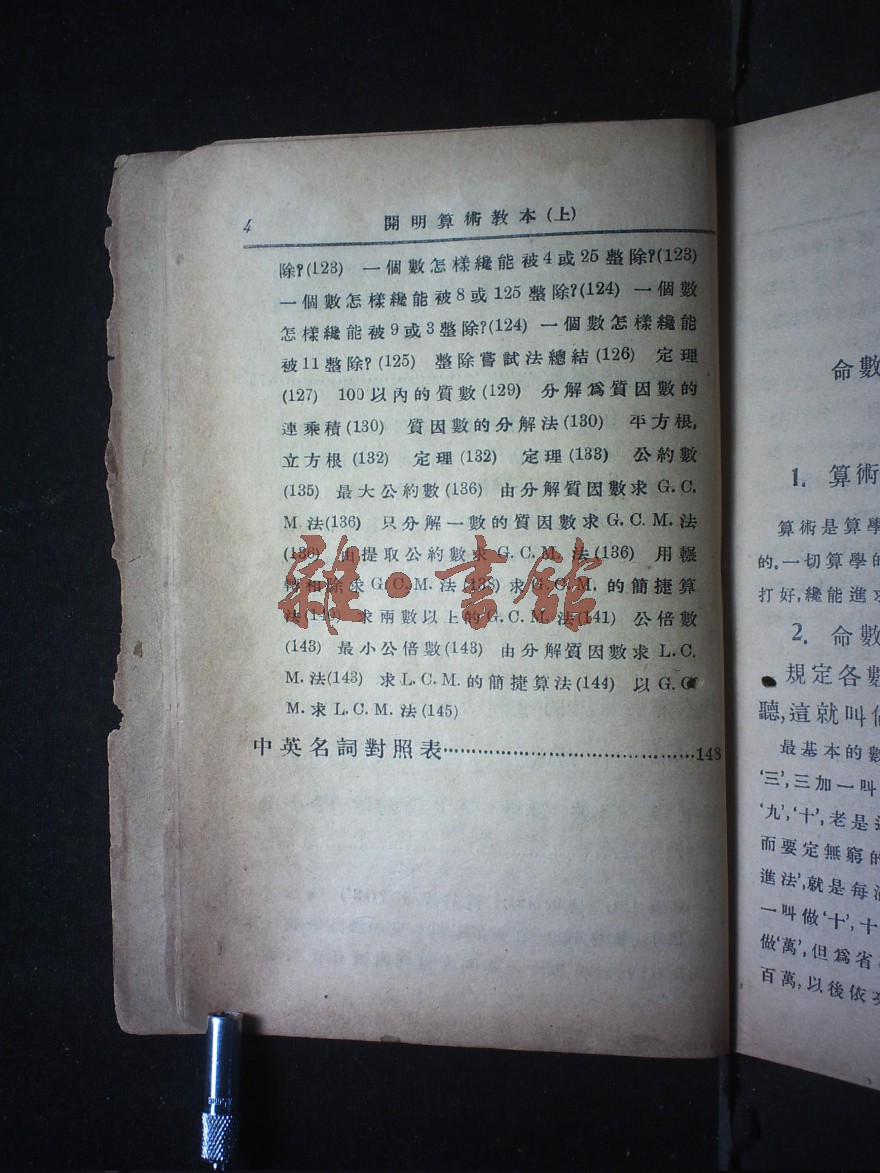 4
開明算術教本(上)
除?(123) 一個數怎樣纔能被4或25整除?(123)
一個數怎樣纔能被8或125整除?(124) 一個數
怎樣纔能被9或3整除?(124) 一個數怎樣纔能
被11整除?(125) 整除嘗試法總結(126) 定理
(127) 100以內的質數(129) 分解爲質因數的
連乘積(130) 質因數的分解法(130) 平方根,
立方根(132) 定理(132) 定理(133) 公約數
(135) 最大公約數(136) 由分解質因數求G.C.
M.法(136) 只分解一數的質因數求G.C.M.法
(136) 由提取公約數求G.C.M.法(136) 用輾
轉相除求G.C.M.法(138) 求G.C.M.的簡捷算
法(140) 求兩數以上的G.C.M.法(141) 公倍數
(143) 最小公倍數(143) 由分解質因數求L.C.
M.法(143) 求L.C.M.的簡捷算法(144) 以G.C.
M.求L.C.M.法(145)
中英名詞對照表……………………………148
雜·書館
命數
1. 算術
算術是算學
的。一切算學的
打好,纔能進求
2. 命數
規定各數
聽,這就叫做
最基本的數
‘三’,三加一叫
‘九’,‘十’,老是
而要定無窮的
進法’,就是每
一叫做‘十’,十
做‘萬’,但爲省
百萬,以後依